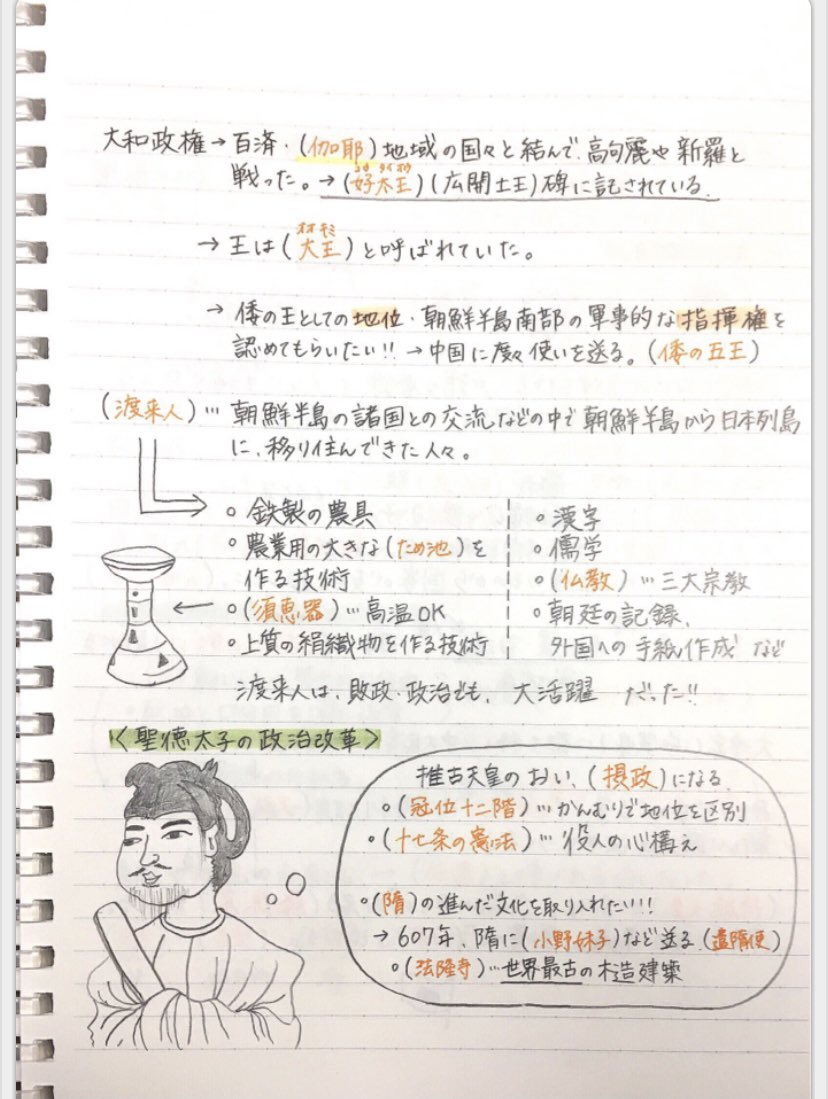 大和政権→百済・(伽耶)地域の国々と結んで、高句麗や新羅と
戦った。→(好太王)(広開土王)碑に記されている。
コウ タイオウ
オオキミ
→王は(大王)と呼ばれていた。
→倭の王としての地位・朝鮮半島南部の軍事的な指揮権を
認めてもらいたい!!→中国に度々使いを送る。(倭の五王)
(渡来人)…朝鮮半島の諸国との交流などの中で朝鮮半島から日本列島
に、移り住んできた人々。
○鉄製の農具
○農業用の大きな(ため池)を
作る技術
○(須恵器)…高温OK
○上質の絹織物を作る技術
○漢字
○儒学
○(仏教)…三大宗教
○朝廷の記録、
外国への手紙作成 など
渡来人は、政・政治でも、大活躍 だった!!
<聖徳太子の政治改革>
推古天皇のおい、(摂政)になる
○(冠位十二階)…かんむりで地位を区別
○(十七条の憲法)…役人の心構え
○(隋)の進んだ文化を取り入れたい!!!
→607年、隋に(小野妹子)など送る(遣隋使)
○(法隆寺)…世界最古の木造建築